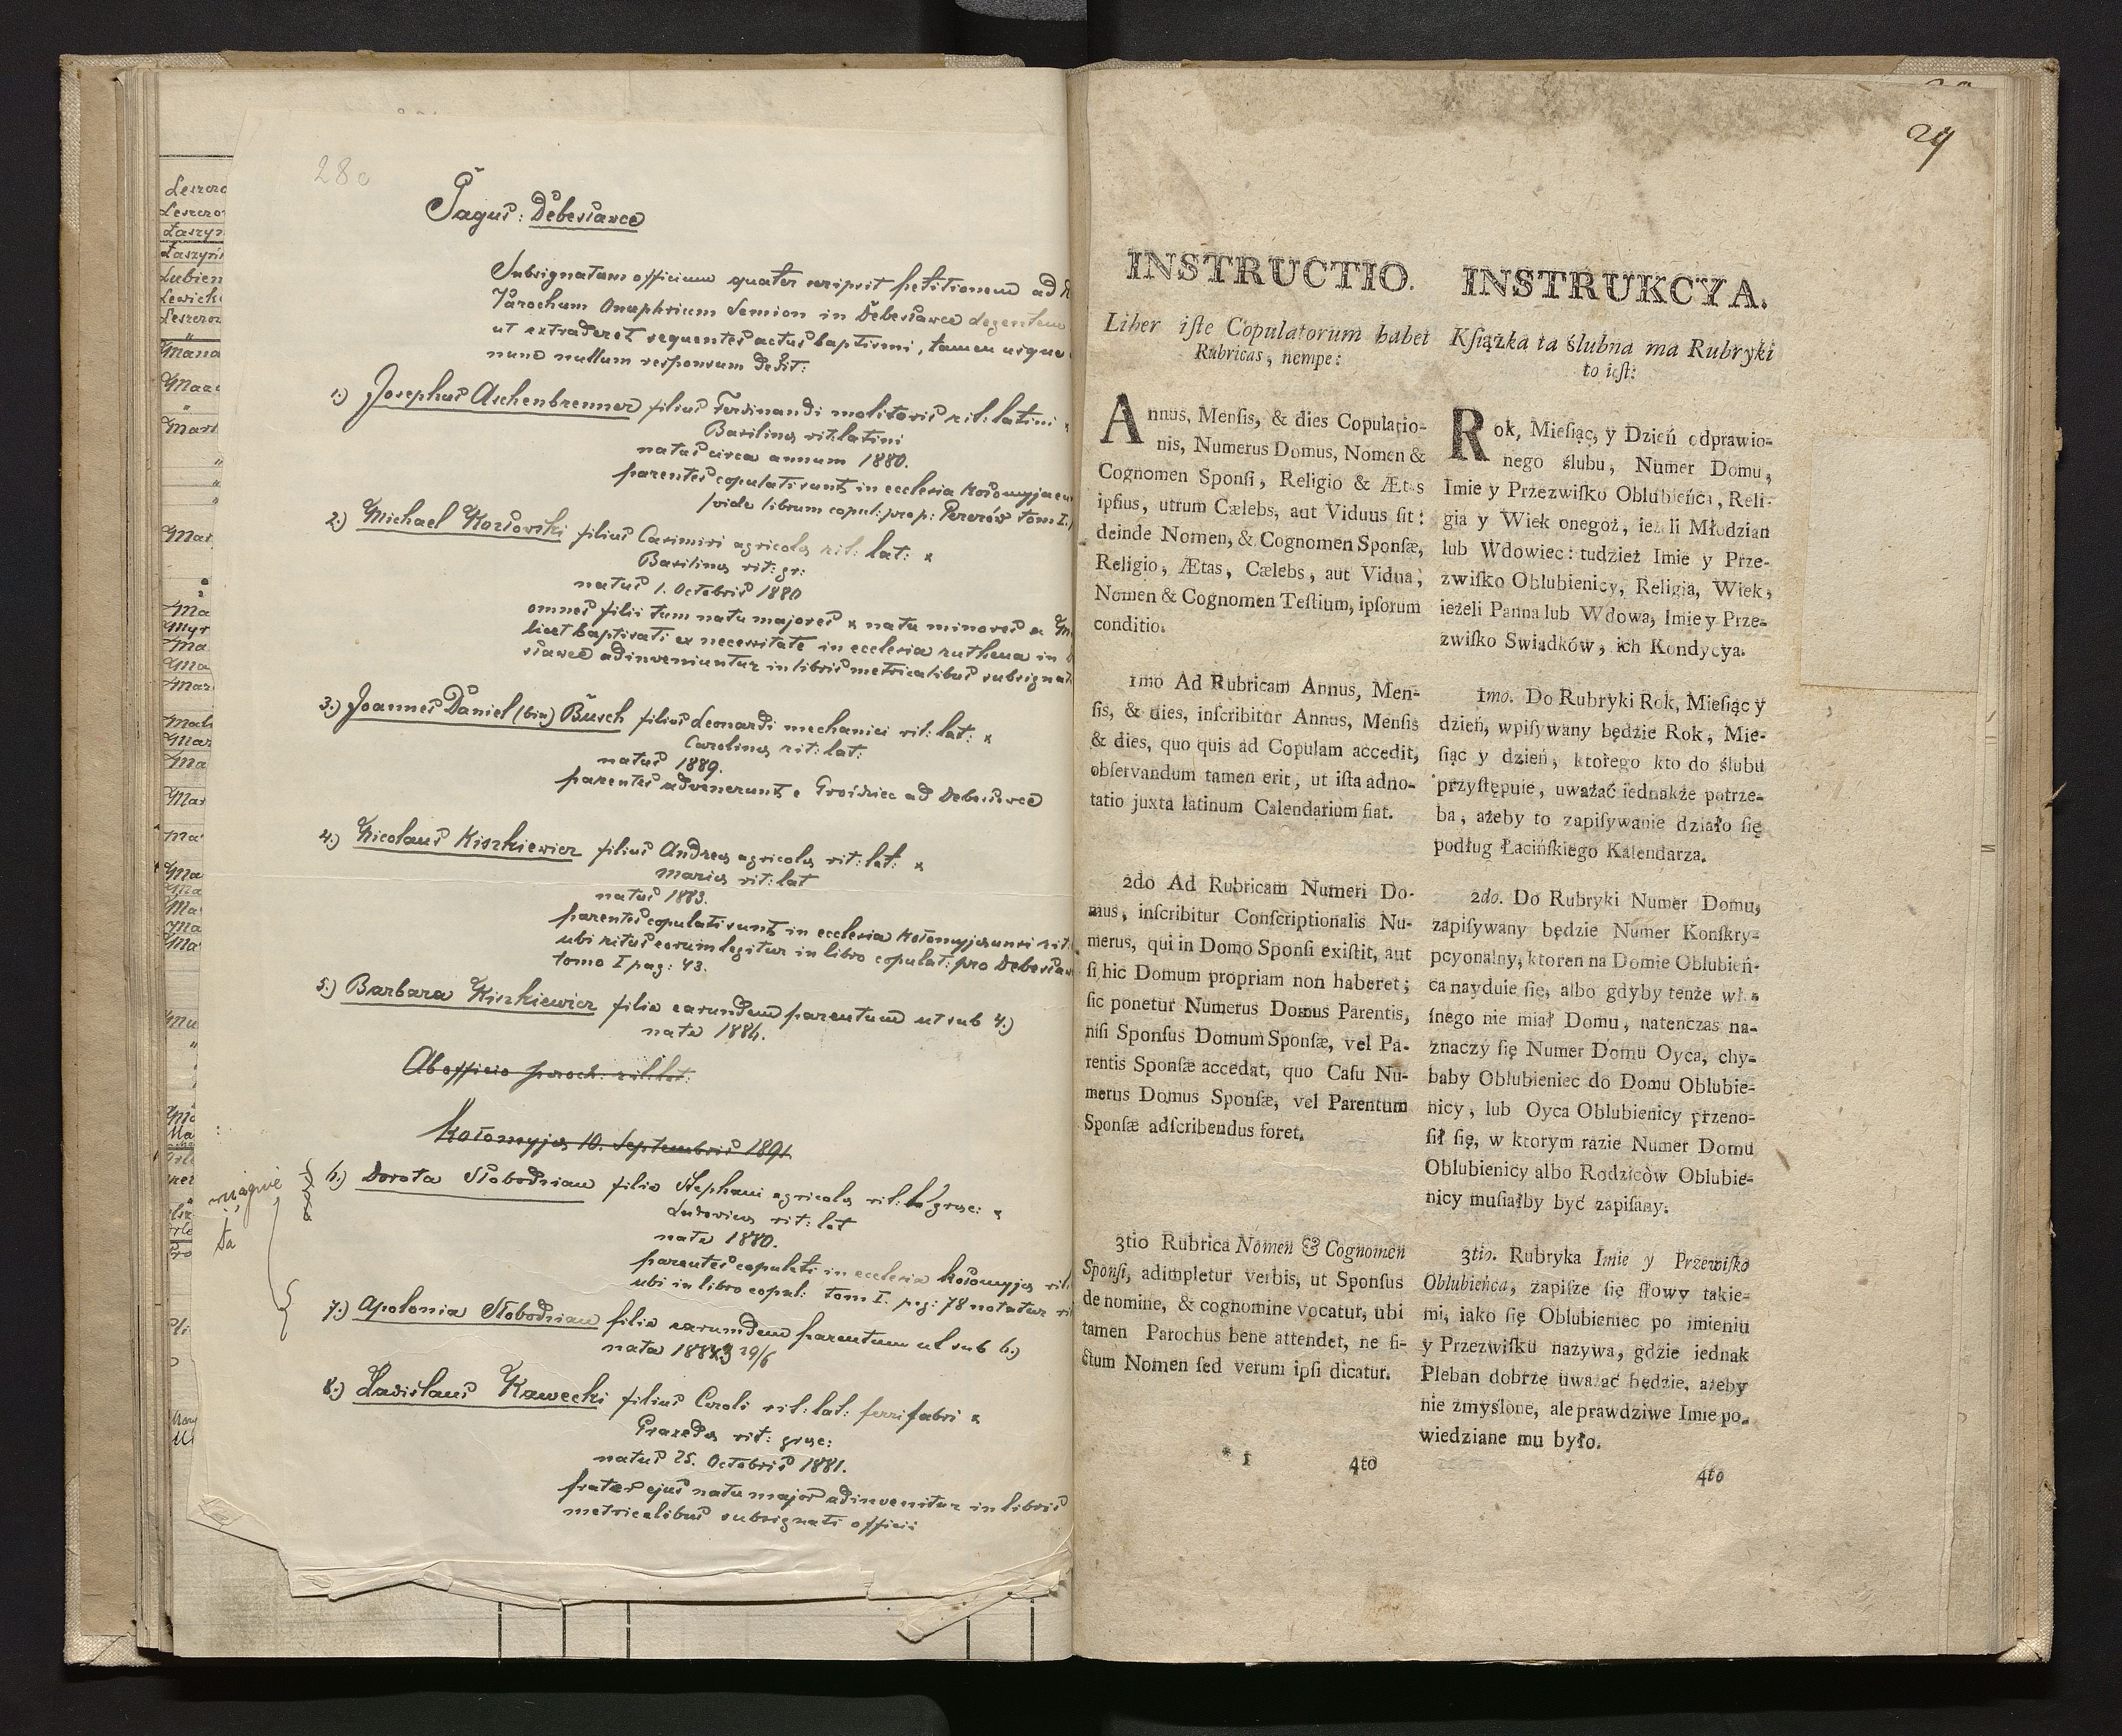 28c
Pagus: Debesławce
Subsignatum officium quater scripsit petitionem ad
Parochum Onuphrium Semion in Debesławce degentem
ut extraderet sequentes actus baptismi, tamen usque
nunc nullum responsum dedit:
1.) Josephus Aschenbrenner filius Ferdinandi molitoris rit: latini
Basilina rit: latini
natus circa annum 1880.
parentes copulati sunt in ecclesia Kołomyjae
vide librum copul: prop: Pererów tom I.
2.) Michael Kozłowski filius Casimiri agricola rit: lat: x
Basilina rit: gr:
natus 1. Octobris 1880
omnes filii tum natu majores x natu minores
licet baptisati ex necessitate in ecclesia ruthena in
sławce adinveniuntur in libris metricalibus subsignati
3.) Joannes Daniel (bin) Büsch filius Leonardi mechanici rit: lat: x
Carolina rit: lat:
natus 1889.
parentes advenerunt e Gwoździec ad Debesławce
4.) Nicolaus Kiszkiewicz filius Andrea agricola rit: lat: x
Maria rit: lat
natus 1883.
parentes copulati sunt in ecclesia Kołomyja
ubi ritus eorum legitur in libro copulat: pro Debesław
tomo I pag: 43.
5.) Barbara Kiszkiewicz filia earundem parentum ut sub 4.)
nata 1886.
Ab officio paroch: rit: lat:
Kołomyja 10. Septembris 1891.
6.) Dorota Słobodzian filia Stephani agricola rit: graec: x
Ludovica rit: lat
nata 1880.
parentes copulati in ecclesia Kołomyja rit:
ubi in libro copul: tom I. pag: 78 notatur
7.) Apolonia Słobodzian filia earumdem parentum ut sub 6.)
nata 1883 29/6
8.) Ladislaus Kawecki filius Caroli rit: lat: ferrifabri x
Praxeda rit: graec:
natus 25. Octobris 1881.
frater ejus natu major adinvenitur in libris
metricalibus subsignati officii
29
INSTRUCTIO.
Liber iſte Copulatorum habet
Rubricas, nempe:
Annus, Menſis, & dies Copulatio-
nis, Numerus Domus, Nomen &
Cognomen Sponſi, Religio & Ætas
ipſius, utrum Cælebs, aut Viduus ſit:
deinde Nomen, & Cognomen Sponſæ,
Religio, Ætas, Cælebs, aut Vidua,
Nomen & Cognomen Teſtium, ipſorum
conditio.
1mo Ad Rubricam Annus, Men-
ſis, & dies, inſcribitur Annus, Menſis
& dies, quo quis ad Copulam accedit,
obſervandum tamen erit, ut iſta adno-
tatio juxta latinum Calendarium fiat.
2do Ad Rubricam Numeri Do-
mus, inſcribitur Conſcriptionalis Nu-
merus, qui in Domo Sponſi exiſtit, aut
ſi hic Domum propriam non haberet;
ſic ponetur Numerus Domus Parentis,
niſi Sponſus Domum Sponſæ, vel Pa-
rentis Sponſæ accedat, quo Caſu Nu-
merus Domus Sponſæ, vel Parentum
Sponſæ adſcribendus foret.
3tio Rubrica Nomen & Cognomen
Sponſi, adimpletur verbis, ut Sponſus
de nomine, & cognomine vocatur, ubi
tamen Parochus bene attendet, ne fi-
ctum Nomen ſed verum ipſi dicatur.
* 1 4to
INSTRUKCYA.
Kſiążka ta ślubna ma Rubryki
to ieſt:
Rok, Mieſiąc, y Dzień odprawio-
nego ślubu, Numer Domu,
Imie y Przezwiſko Oblubieńca, Reli-
gia y Wiek onegoż, ieżeli Młodzian
lub Wdowiec: tudzież Imie y Prze-
zwiſko Oblubienicy, Religia, Wiek,
ieżeli Panna lub Wdowa, Imie y Prze-
zwiſko Swiadków, ich Kondycya.
1mo. Do Rubryki Rok, Mieſiąc y
dzień, wpiſywany będzie Rok, Mie-
ſiąc y dzień, ktorego kto do ślubu
przyſtępuie, uważać iednakże potrze-
ba, ażeby to zapiſywanie działo ſię
podług Łacińſkiego Kalendarza.
2do. Do Rubryki Numer Domu,
zapiſywany będzie Numer Konſkry-
pcyonalny, ktoren na Domie Oblubień-
ca nayduie ſię, albo gdyby tenże wła-
ſnego nie miał Domu, natenczas na-
znaczy ſię Numer Domu Oyca, chy-
baby Oblubieniec do Domu Oblubie-
nicy, lub Oyca Oblubienicy przeno-
ſił ſię, w ktorym razie Numer Domu
Oblubienicy albo Rodzicòw Oblubie-
nicy muſiałby być zapiſany.
3tio. Rubryka Imie y Przewiſko
Oblubieńca, zapiſze ſię ſłowy takie-
mi, iako ſię Oblubieniec po imieniu
y Przezwiſku nazywa, gdzie iednak
Pleban dobrze uważać będzie, ażeby
nie zmyślone, ale prawdziwe Imie po-
wiedziane mu było.
4to